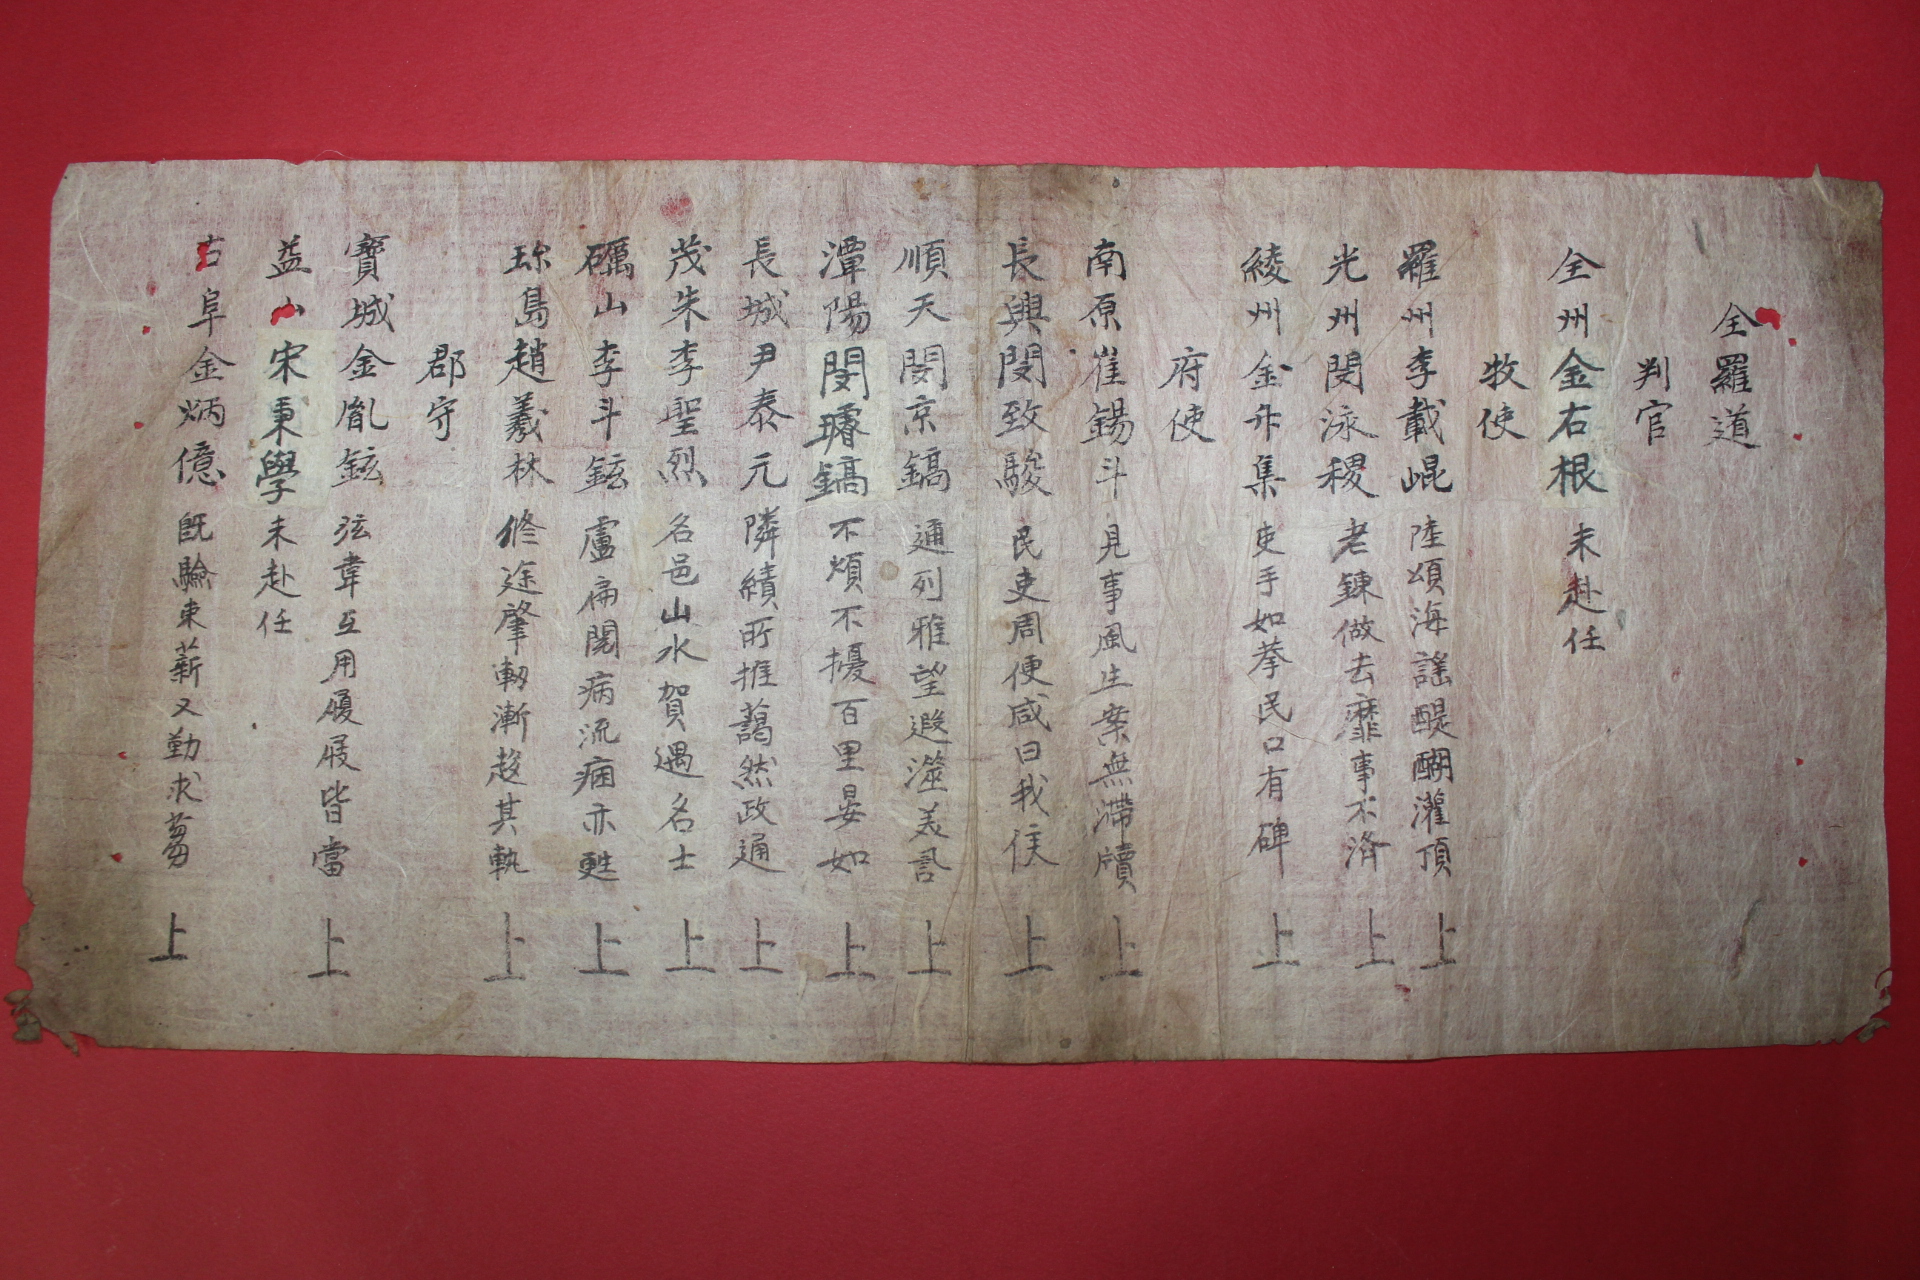 全羅道
判官
全州金右根 未赴任
牧使
羅州李載崐 陸頌海謠醍醐灌頂 上
光州閔泳稷 老鍊做去靡事不済 上
綾州金升集 吏手如拲民口有碑 上
府使
南原崔錫斗 見事風生案無滯牘 上
長興閔致駿 民吏周便咸曰我侯 上
順天閔京鎬 通列雅望遐澨美 上
潭陽閔璿鎬 不煩不擾百里晏如 上
長城尹泰元 隣績所推藹然政通 上
茂朱李聖烈 名邑山水賀遇名士 上
礪山李斗鉉 盧扁閱病流痼亦甦 上
珎島趙羲林 修途肇軔漸趍其軌 上
郡守
寶城金胤鉉 弦韋互用履屐皆當 上
益山宋秉學 未赴任
古阜金炳億 旣驗束薪又勤求芻 上